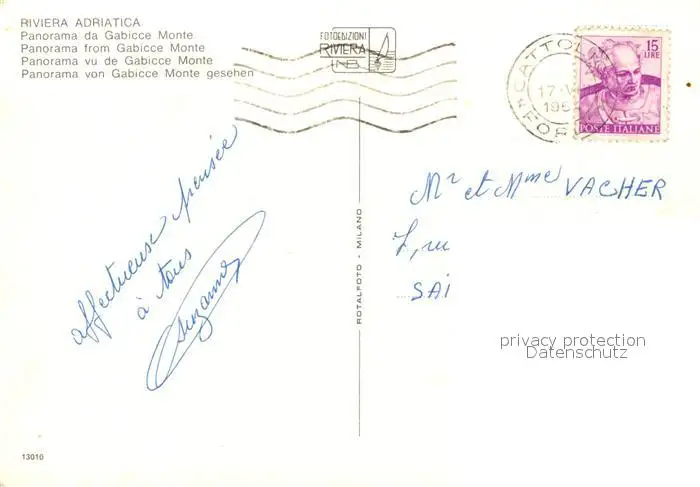 RIVIERA ADRIATICA
Panorama da Gabicce Monte
Panorama from Gabicce Monte
Panorama vu de Gabicce Monte
Panorama von Gabicce Monte gesehen
FOTOEDIZIONI
RIVIERA
CATTOL
17
196
FOR
15
LIRE
POSTE ITALIANE
affectueuse pensée
à tous
Suzanne
Mr et Mme VACHER
7, ru
SAI
privacy protection
Datenschutz
ROTALFOTO - MILANO
13010